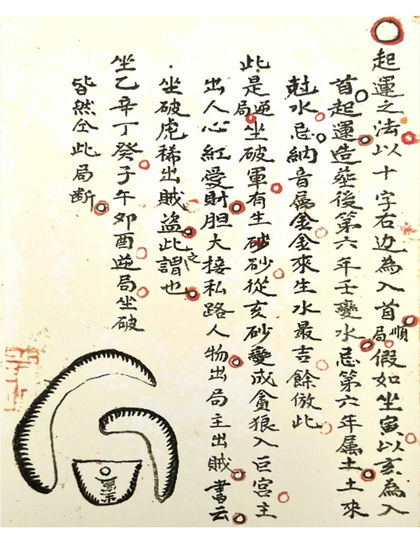 起運之法以十字右边為入首順局假如坐寅以亥為入
首起運造葬後第六年壬變水忌第六年属土土來
尅水忌納音属金金來生水最吉餘倣此
此是逆局坐破軍有生砂砂從亥砂變成貪狼入巨宮主
出人心紅愛財胆大接私路人物出局主出賊書云
坐破稀出賊盗此之謂也
坐乙辛丁癸子午卯酉逆局坐破
皆然仝此局断